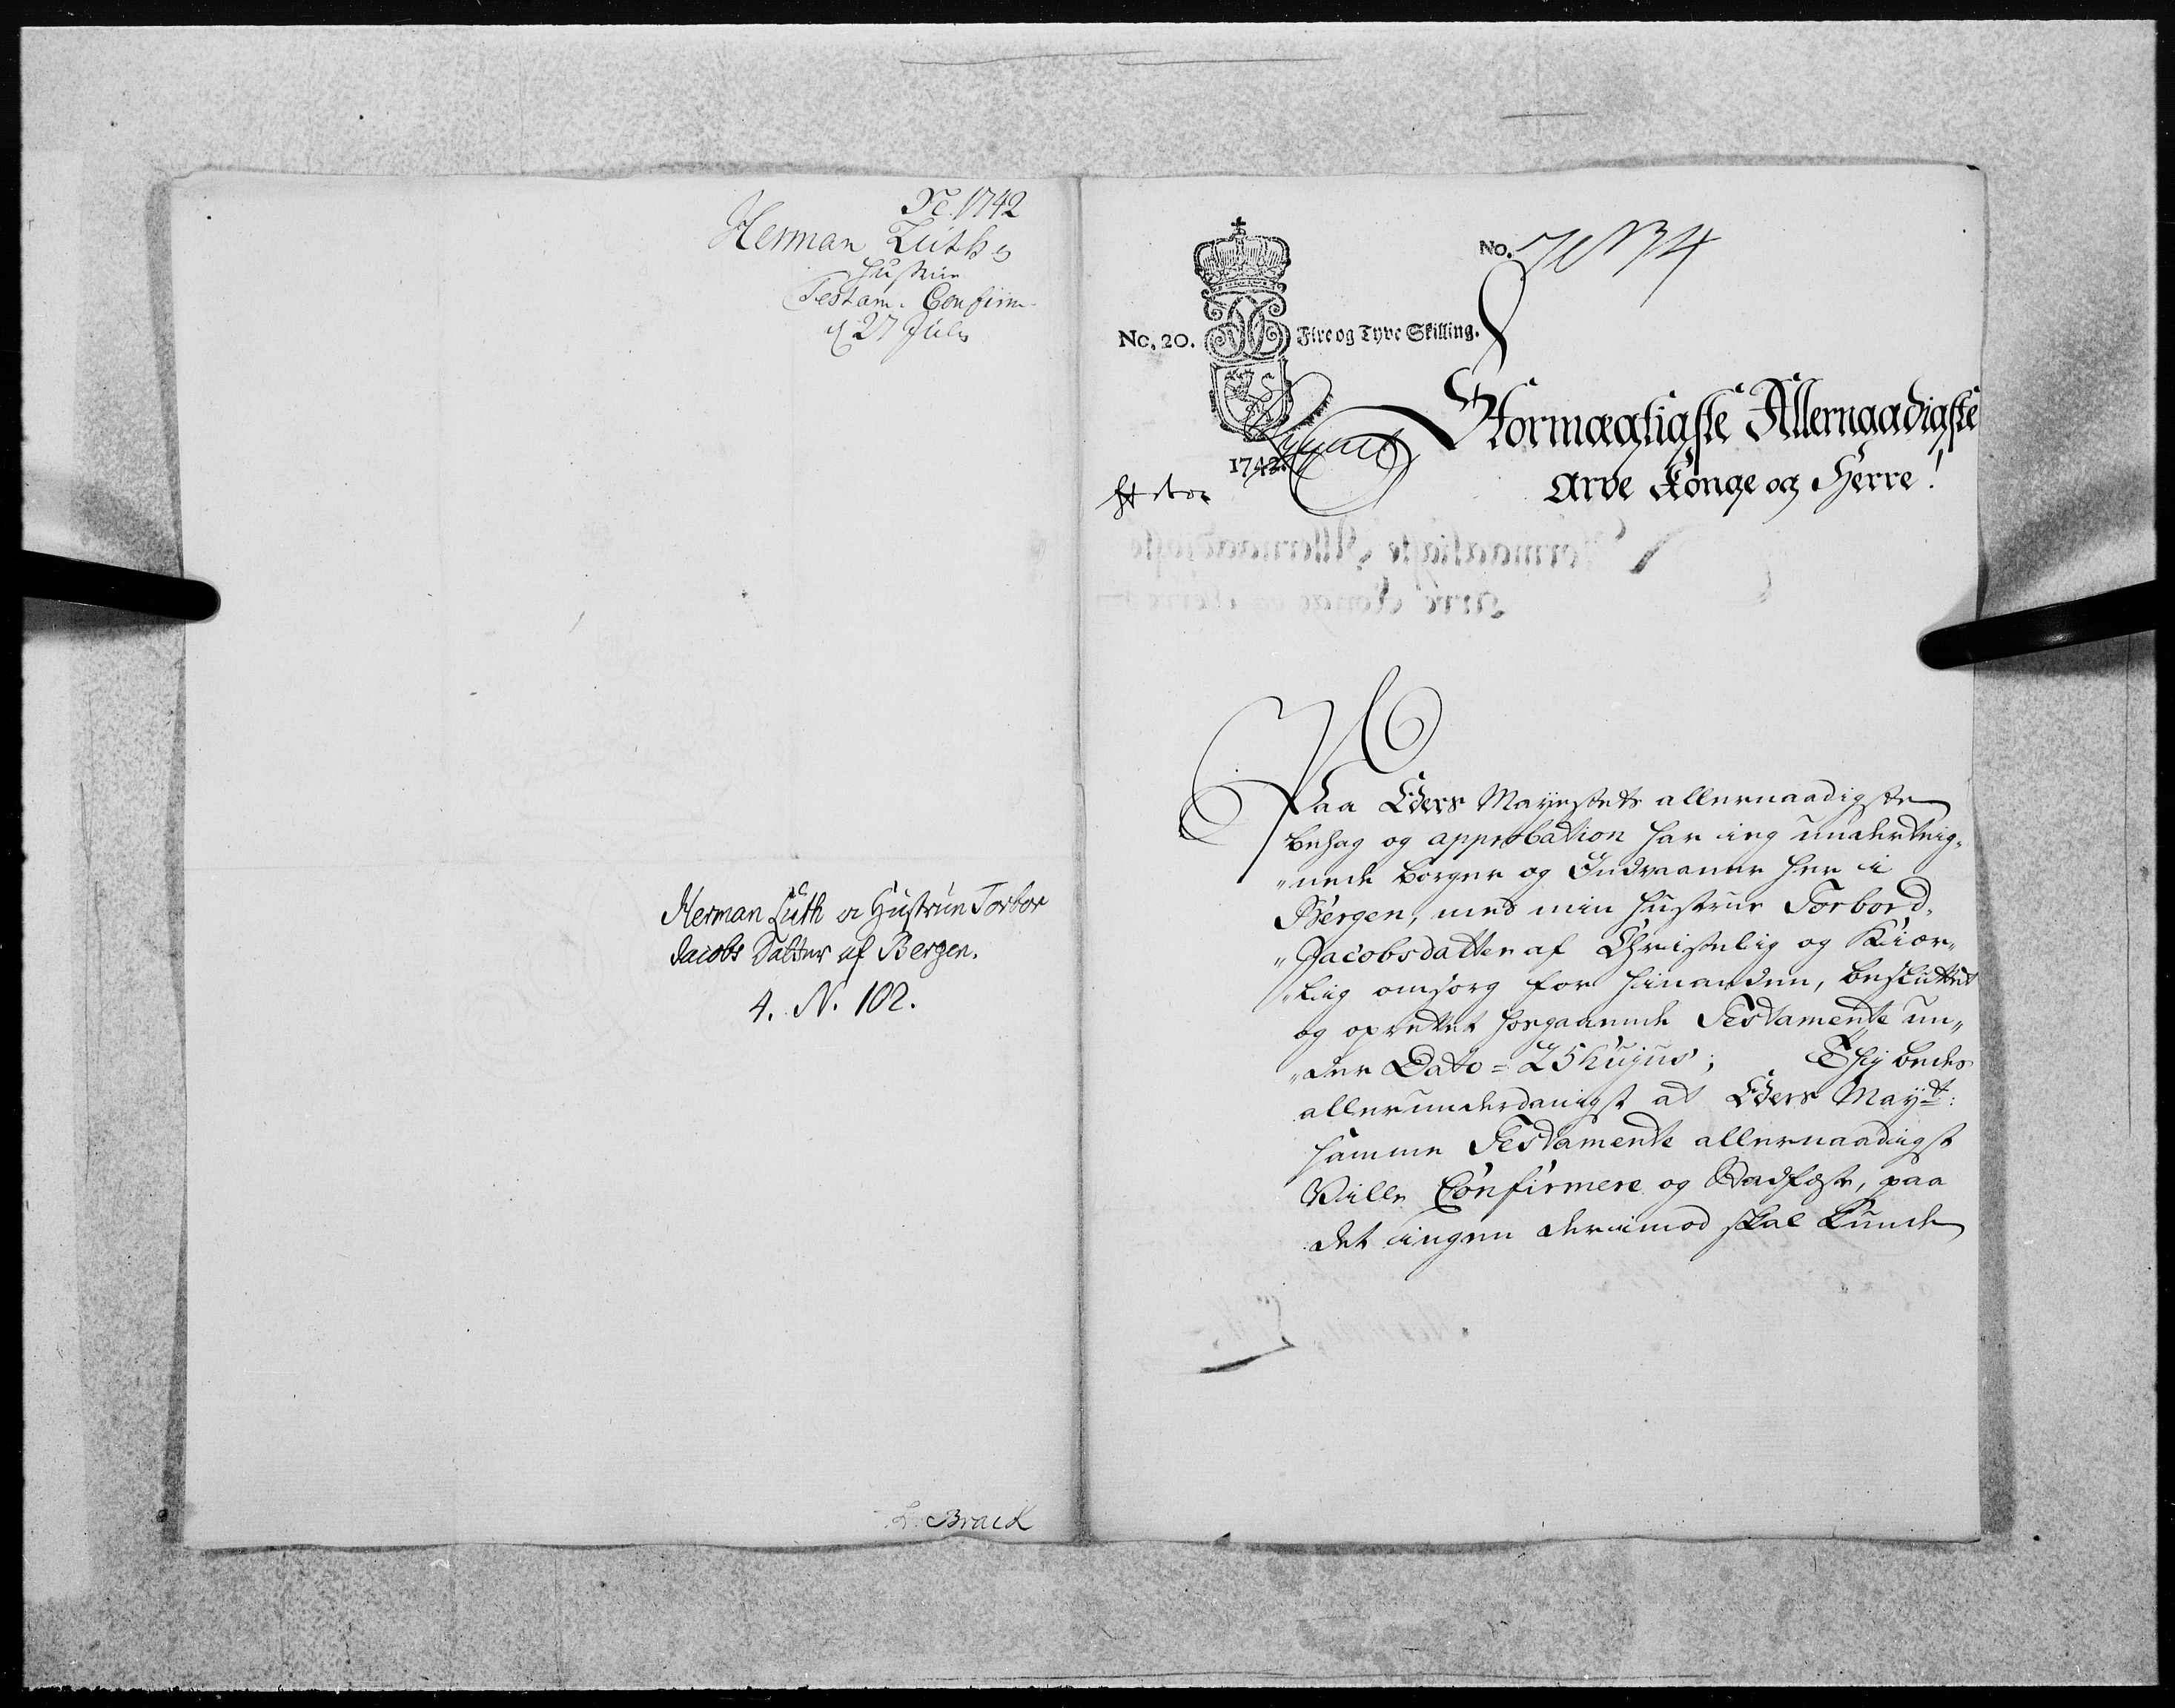 1742
Herman Lüth og
Hustrue
Testam. Confirm
d 27 Julij
Herman Lüth og Hustrüe Torbor
Jacobs Datter af Bergen.
4. N. 102.
L. Braëk
No.
No. 20. Fire og Tyve Skilling.
1742.
Stormægtigste Allernaadigste
Arve Konge og Herre!
Paa Eders Mayestets allernaadigste
behag og approbation har ieg underteig„
„nede borger og Indvaaner her i
Bergen, med min hustrue Torbord„
„Jacobsdatter af Christelig og Kiær„
„lig omsorg for hinanden, besluttet
og oprettet hosgaaende Testamente un„
„der Dato = 25 hujus; Thj bedes
allerunderdanigst at Eders Mayt:
samme Testamente allernaadigst
Ville Confirmere og Stadfæste, paa
det ingen derimod skal kunde